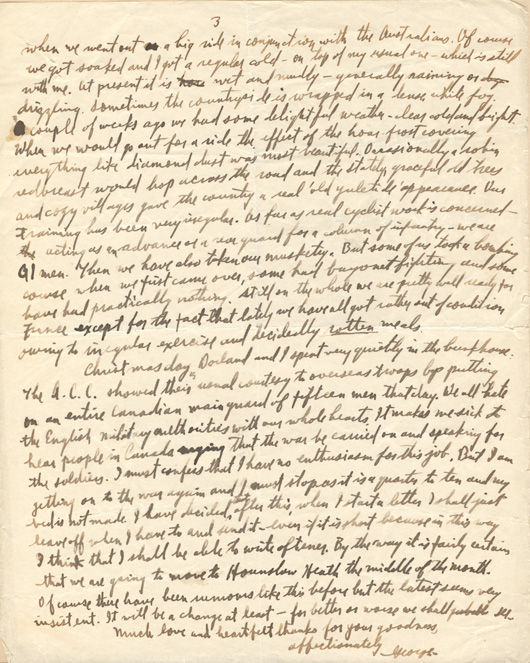 3
when we went out on a big ride in conjunction with the Australians. Of course
we got soaked and I got a regular cold - on top of my usual one - which is still
with me. At present it is wet and muddy - generally raining or
drizzling. Sometimes the countryside is wrapped in a dense, white fog.
A couple of weeks ago we had some delightful weather - clear cold and bright.
When we would go out for a ride the effect of the hoar frost covering
everything like diamond dust was most beautiful. Occasionally a robin
redbreast would hop across the road and the stately, graceful old trees
and cozy villages gave the country a real 'old yuletide' appearance. Our
training has been very irregular. As far as real cyclist work is concerned -
acting as an advance or a rear guard for a column of infantry - we are
Then we have also taken our musketry. But some of us took a bombing
course when we first came over, some had bayonet fighting and some
have had practically nothing. Still on the whole we are pretty well ready for
France except for the fact that lately we have all got rather out of condition
owing to irregular exercise and decidedly rotten meals.
Christmas day, Dorland and I spent very quietly in the
The A.C.C. showed their usual courtesy to overseas troops by putting
on an entire Canadian main guard of fifteen men that day. We all hate
the English military authorities with our whole hearts. It makes me sick to
hear people in Canada urging that the war be carried on and speaking for
the soldiers. I must confess that I have no enthusiasm for this job. But I am
getting on to the war again and I must stop as it is a quarter to ten and my
bed is not made. I have decided, after this, when I start a letter I shall just
leave off when I have to and send it - even if it is short because in this way
I think that I shall be able to write oftener. By the way it is fairly certain
that we are going to move to Hounslow Heath the middle of the month.
Of course there have been rumours like this before but the latest seems very
insistent. It will be a change at least - for better or worse we shall see.
Much love and heartfelt thanks for your goodness,
affectionately
George